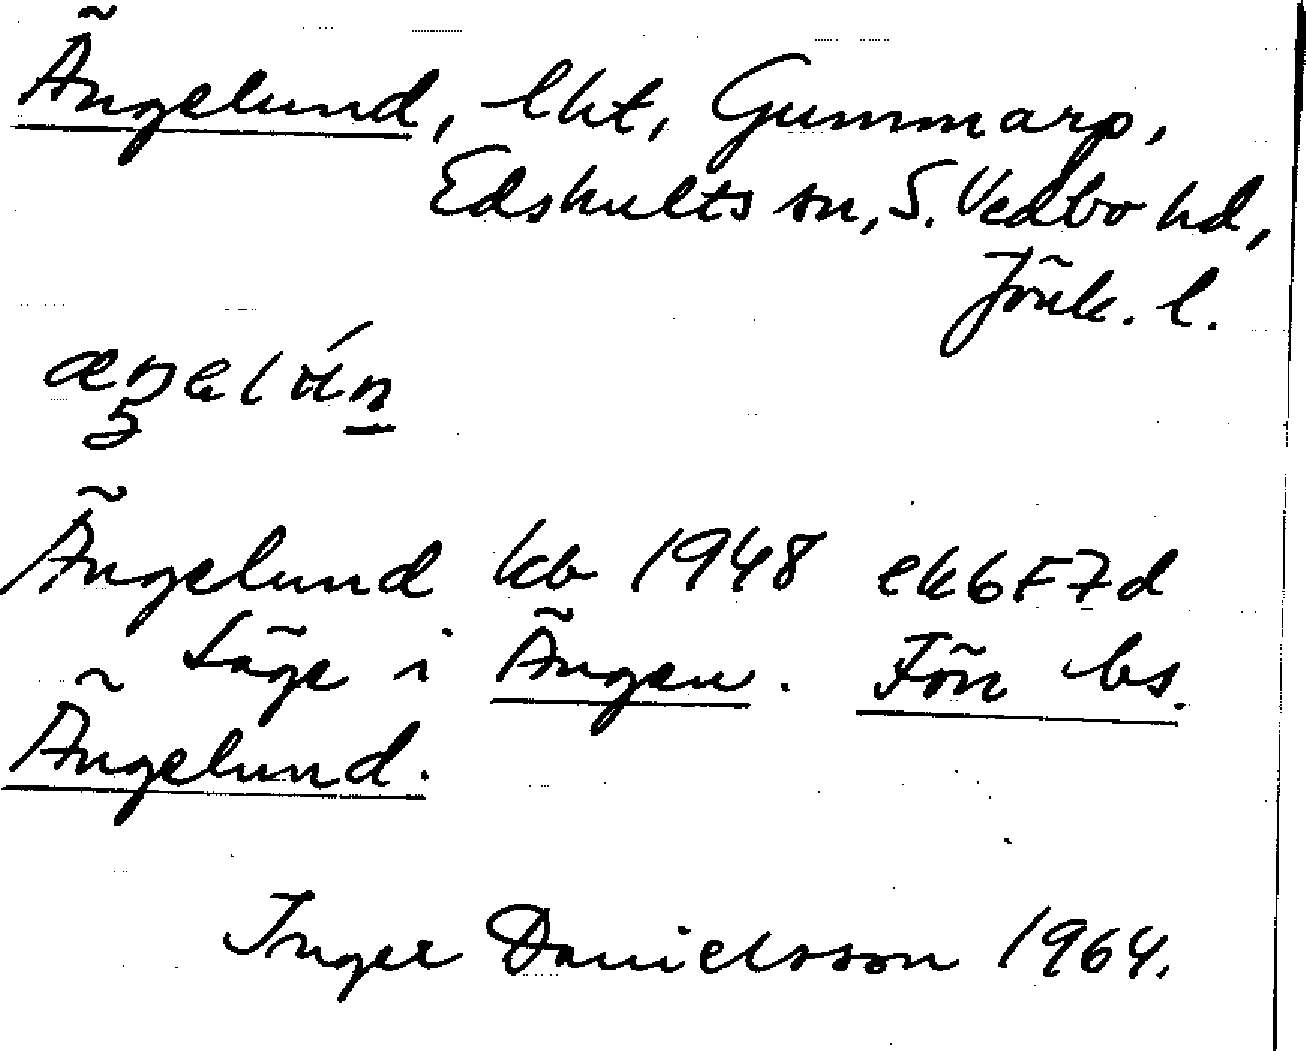 Ängelund, lht, Gummarp,
Edshults sn, S. Vedbo hd,
Jönk. l.
Ängelund kb 1948 ek 6F7d
Läge i Ängen. Förr bs.
Ängelund.
Inger Danielsson 1964.